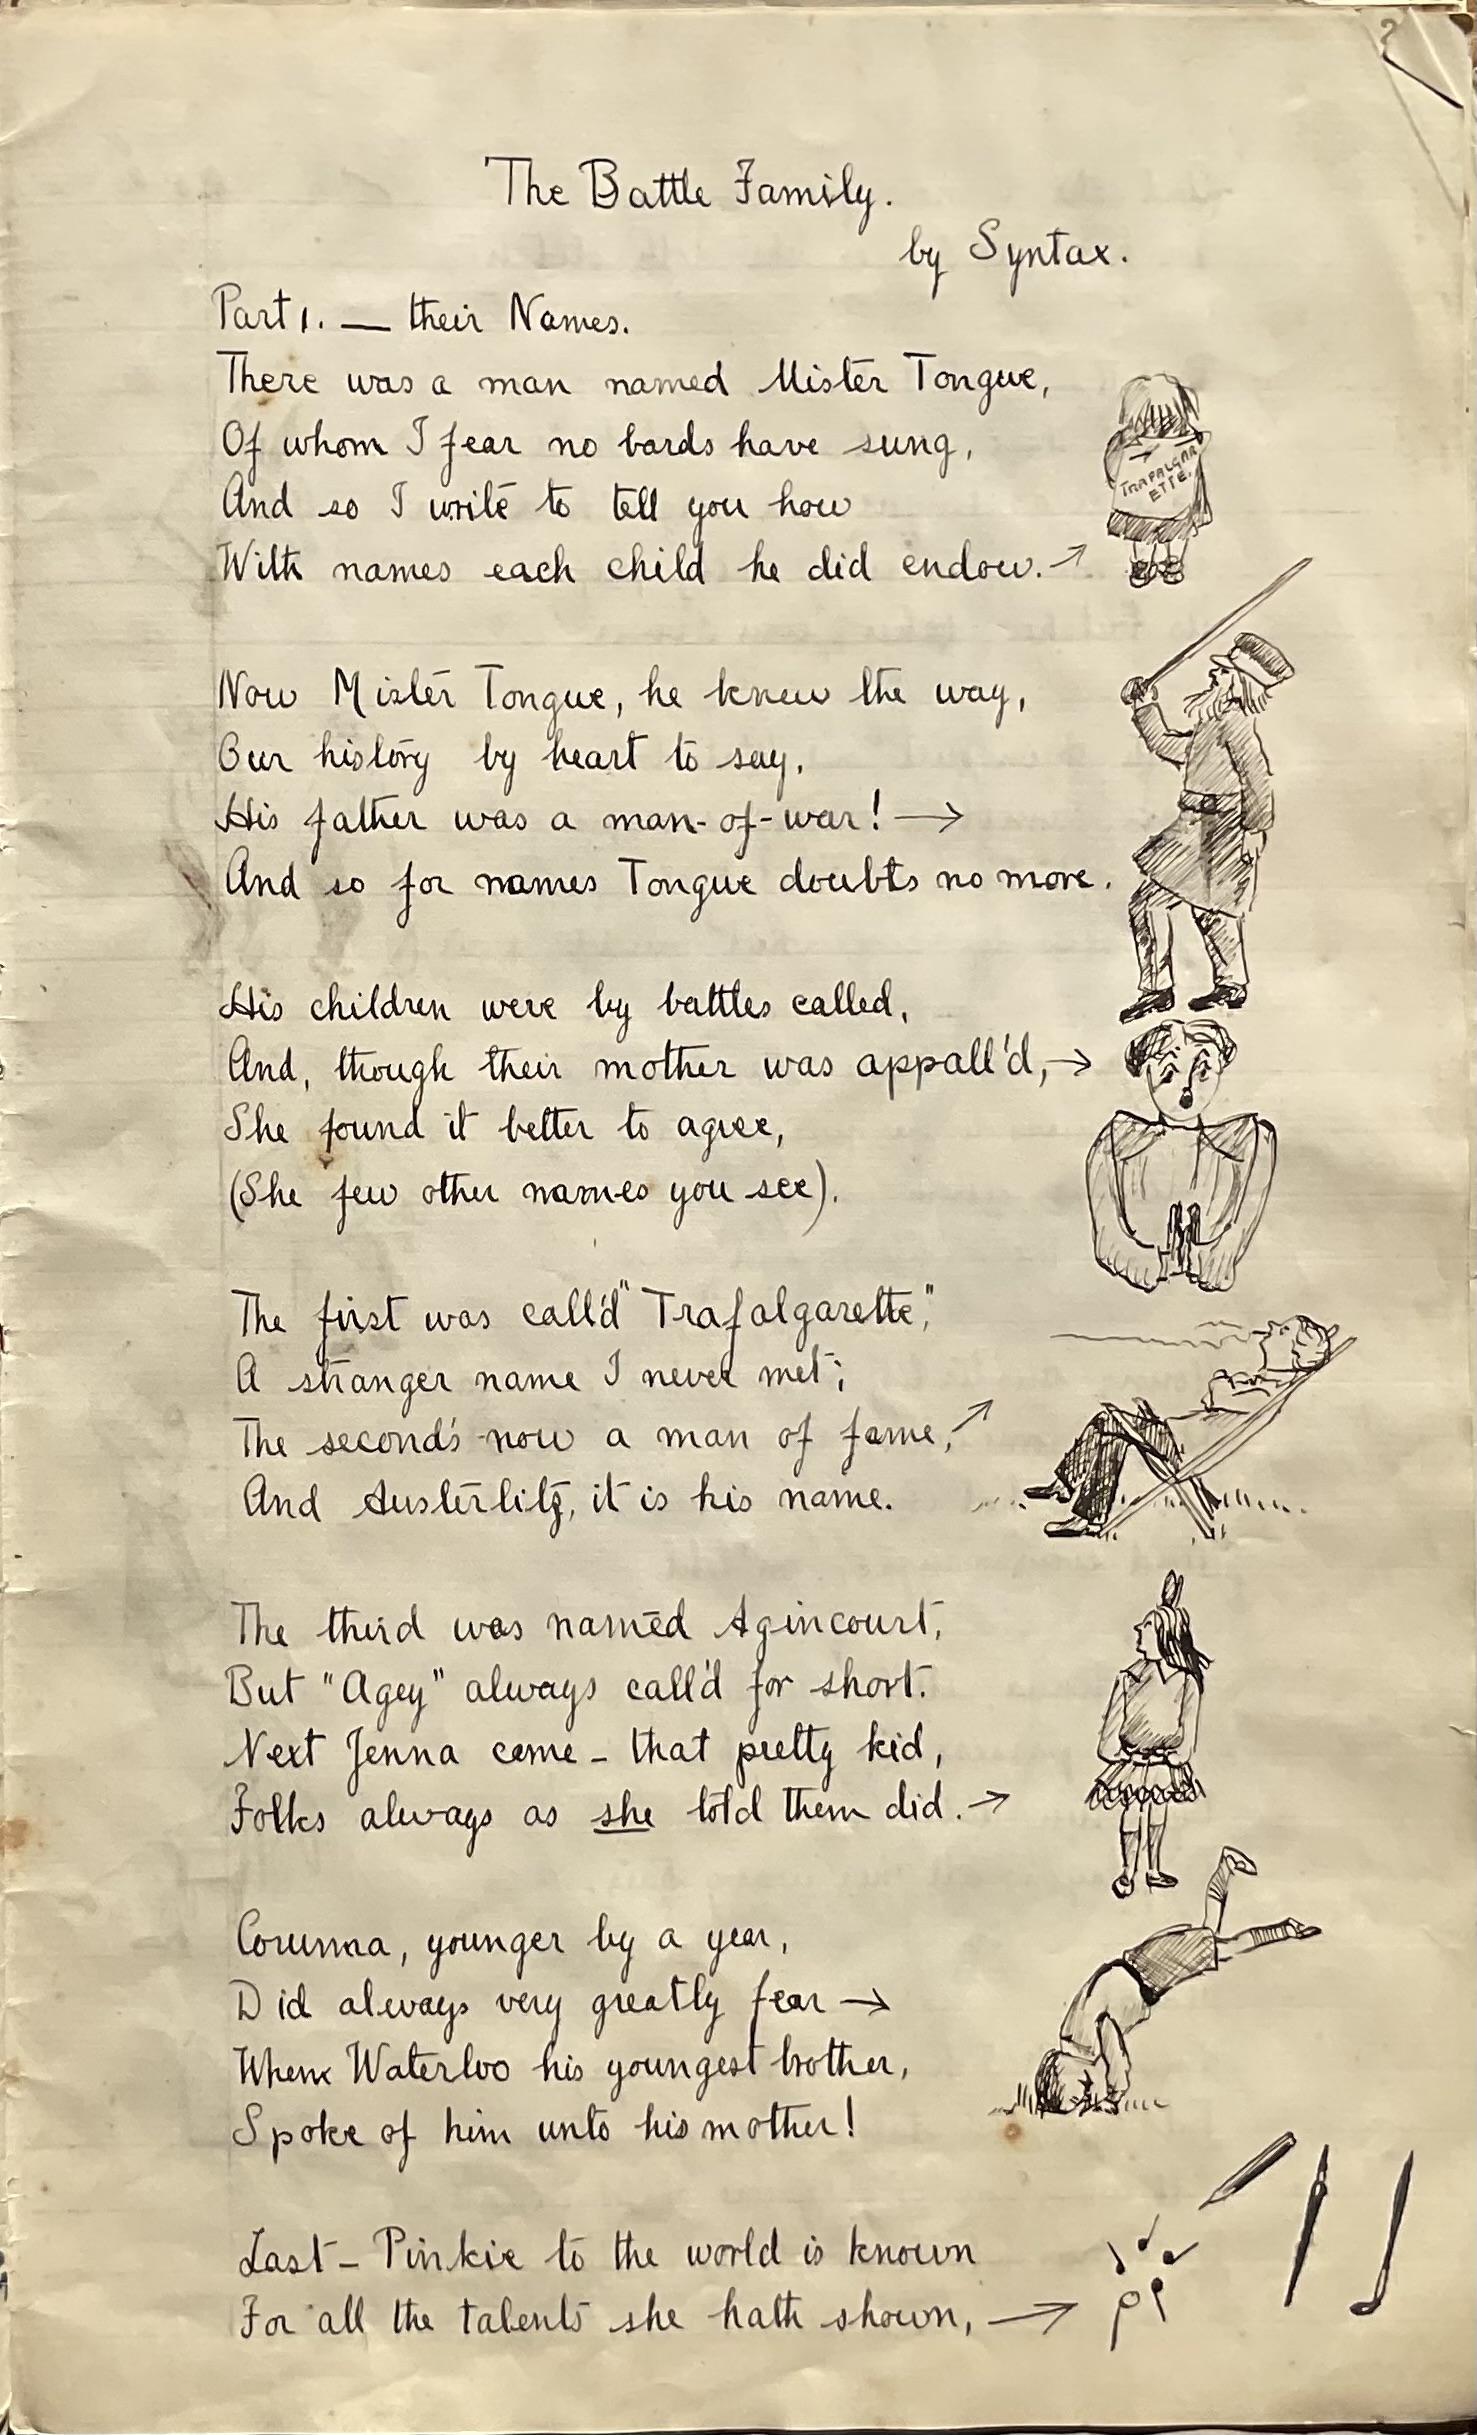 2
The Battle Family.
by Syntax.
Part 1. — their Names.
There was a man named Mister Tongue,
Of whom I fear no bards have sung,
And so I write to tell you how
With names each child he did endow. →
TRAFALGAR
ETTE.
Now Mister Tongue, he knew the way,
Our history by heart to say,
His father was a man-of-war! →
And so for names Tongue doubts no more.
His children were by battles called,
And, though their mother was appall'd, →
She found it better to agree,
(She few other names you see).
The first was call'd "Trafalgarette",
A stranger name I never met;
The second's now a man of fame, →
And Austerlitz, it is his name.
The third was named Agincourt,
But "Agey" always call'd for short.
Next Jenna came – that pretty kid,
Folks always as she told them did. →
Corunna, younger by a year,
Did always very greatly fear →
When Waterloo his youngest brother,
Spoke of him unto his mother!
Last – Pinkie to the world is known
For all the talents she hath shown, →